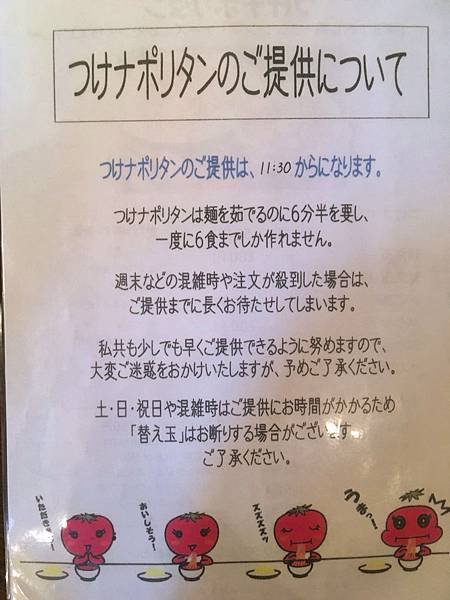 つけナポリタンのご提供について
つけナポリタンのご提供は、11:30からになります。
つけナポリタンは麺を茹でるのに6分半を要し、
一度に6食までしか作れません。
週末などの混雑時や注文が殺到した場合は、
ご提供までに長くお待たせしてしまいます。
私共も少しでも早くご提供できるように努めますので、
大変ご迷惑をおかけいたしますが、予めご了承ください。
土・日・祝日や混雑時はご提供にお時間がかかるため
「替え玉」はお断りする場合がございます
ご了承ください。
いただきまーす
おいしそうー
ズズズズッ
うまっー